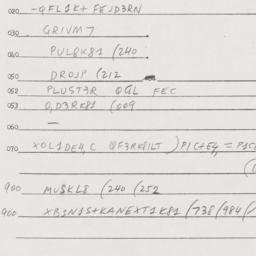 020 -QFL1K+ FEJD3RN
030 GRIVM7
040 PUL8K81 (240
050 DROJP (212
052 PLUST3R QGL FEC
053 0,D3RK81 (009
060 —
070 XOL1DE4,C @F3RK8ILT )PIC+E4, = P15C
(
900 MU8KL8 (240 (252
900 XB1N1S+KANEXT1K81 /738 /984 /